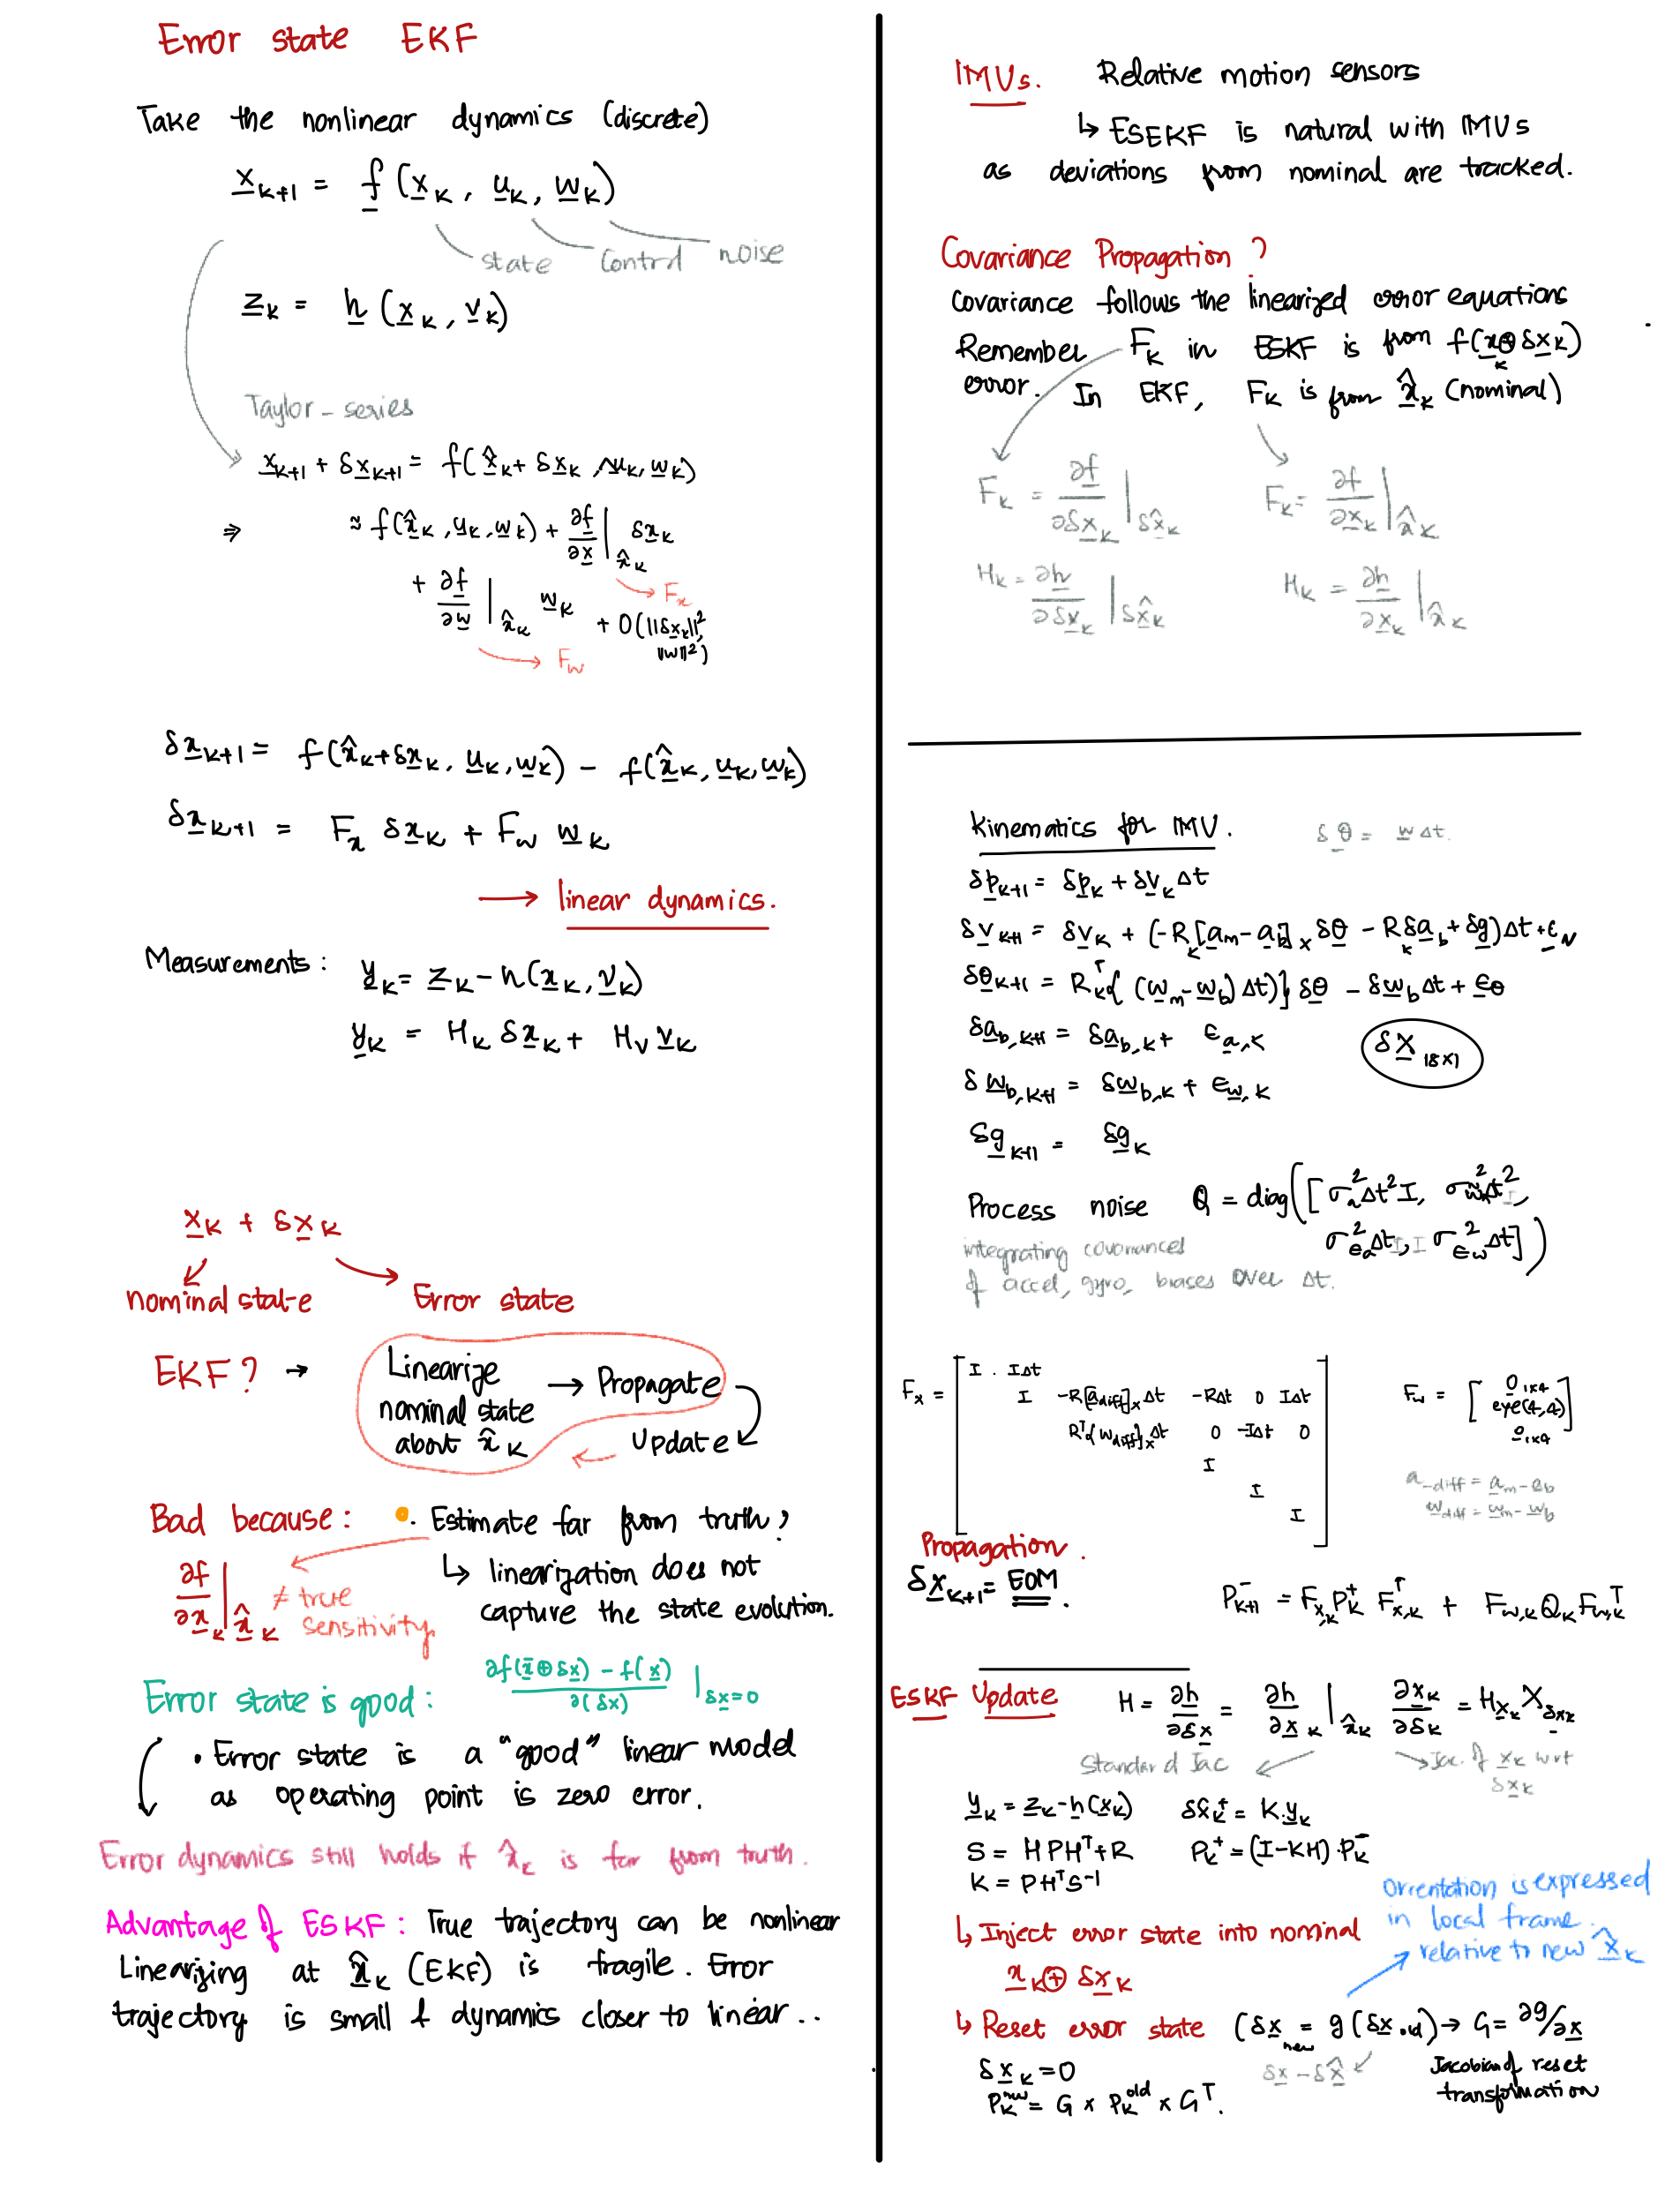 Error state EKF
Take the nonlinear dynamics (discrete)
x_{k+1} = f (x_k, u_k, w_k)
state control noise
z_k = h (x_k, v_k)
Taylor-series
x_{k+1} + δx_{k+1} = f(x̂_k + δx_k, u_k, w_k)
⇒ ≈ f(x̂_k, u_k, w_k) + ∂f/∂x |_{x̂_k} δx_k
→ F_x
+ ∂f/∂w |_{x̂_k} w_k + O(||δx_k||², ||w||²)
→ F_w
δx_{k+1} = f(x̂_k + δx_k, u_k, w_k) − f(x̂_k, u_k, w_k)
δx_{k+1} = F_x δx_k + F_w w_k
→ linear dynamics.
Measurements: y_k = z_k − h(x_k, v_k)
y_k = H_k δx_k + H_v v_k
x_k + δx_k
nominal state Error state
EKF? → Linearize nominal state about x̂_k → Propagate
Update
Bad because: • Estimate far from truth?
↳ linearization does not
capture the state evolution.
∂f/∂x_k |_{x̂_k} ≠ true sensitivity
Error state is good: ∂f(x̄ ⊕ δx) − f(x) / ∂(δx) |_{δx=0}
• Error state is a "good" linear model
as operating point is zero error.
Error dynamics still holds if x̂_k is far from truth.
Advantage of ESKF: True trajectory can be nonlinear
Linearizing at x̂_k (EKF) is fragile. Error
trajectory is small & dynamics closer to linear..
IMUs. Relative motion sensors
↳ ESEKF is natural with IMUs
as deviations from nominal are tracked.
Covariance Propagation?
Covariance follows the linearized error equations
Remember F_k in ESKF is from f(x_k ⊕ δx_k)
error. In EKF, F_k is from x̂_k (nominal)
F_k = ∂f/∂δx_k |_{δx̂_k} F_k = ∂f/∂x_k |_{x̂_k}
H_k = ∂h/∂δx_k |_{δx̂_k} H_k = ∂h/∂x_k |_{x̂_k}
Kinematics for IMU. δθ = w Δt.
δp_{k+1} = δp_k + δv_k Δt
δv_{k+1} = δv_k + (−R_k[a_m − a_b]_x δθ − R_k δa_b + δg)Δt + ε_v
δθ_{k+1} = R_k^T{(w_m − w_b)Δt)} δθ − δw_b Δt + ε_θ
δa_{b,k+1} = δa_{b,k} + ε_{a,k}
δX_{18x1}
δw_{b,k+1} = δw_{b,k} + ε_{w,k}
δg_{k+1} = δg_k
Process noise Q = diag([σ_a² Δt² I, σ_w² Δt² I,
σ_{εa}² Δt I, I σ_{εw}² Δt])
integrating covariances
of accel, gyro, biases over Δt.
F_x = [ I . IΔt
I −R[a_diff]_x Δt −RΔt 0 IΔt
R^T{w_diff}_x Δt 0 −IΔt 0
I
I
I ]
F_w = [ 0_{1x4}
eye(4,4)
0_{1x4} ]
a_diff = a_m − a_b
w_diff = w_m − w_b
Propagation.
δx_{k+1} = EOM. P⁻_{k+1} = F_{x,k} P_k⁺ F_{x,k}^T + F_{w,k} Q_k F_{w,k}^T
ESKF Update H = ∂h/∂δx = ∂h/∂x_k |_{x̂_k} ∂x_k/∂δ_k = H_{x_k} X_{δx_k}
Standard Jac Jac. of x_k wrt δx_k
y_k = z_k − h(x_k) δx̂_k⁺ = K.y_k
S = HPH^T + R P_k⁺ = (I − KH).P_k⁻
K = PH^TS^{-1}
↳ Inject error state into nominal
x_k ⊕ δx_k
Orientation is expressed
in local frame.
relative to new x̂_k
↳ Reset error state (δx_new = g(δx.old) → G = ∂g/∂x
δx − δx̂
δx_k = 0
Jacobian of reset
transformation
P_k^{new} = G x P_k^{old} x G^T.